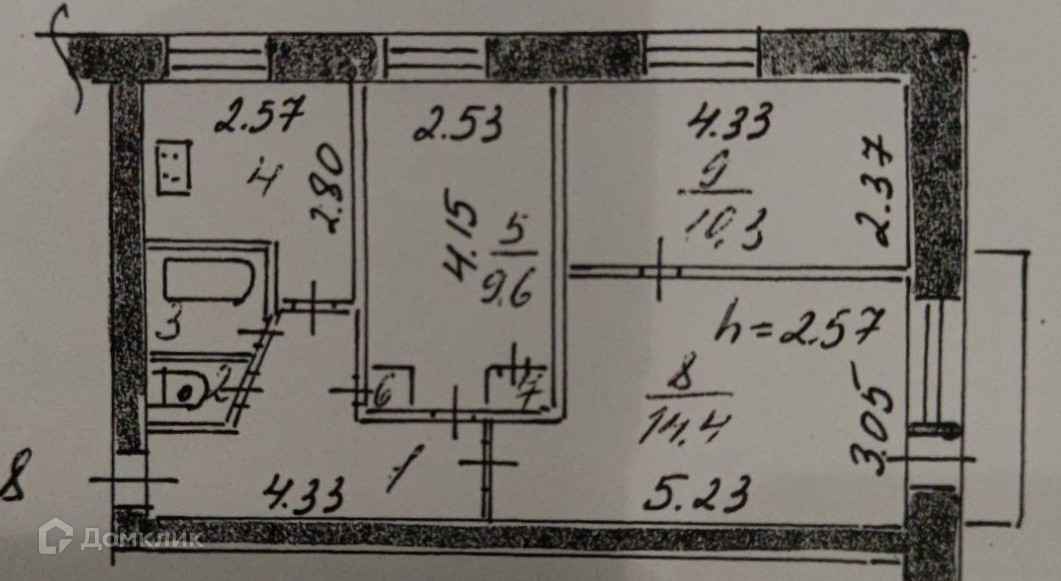 2.57
2.53
4.33
4
2.80
4.15
5
9.6
9
10.3
2.37
3
h = 2.57
2
6
7
8
14.4
3.05
8
4.33
1
5.23
Домклик